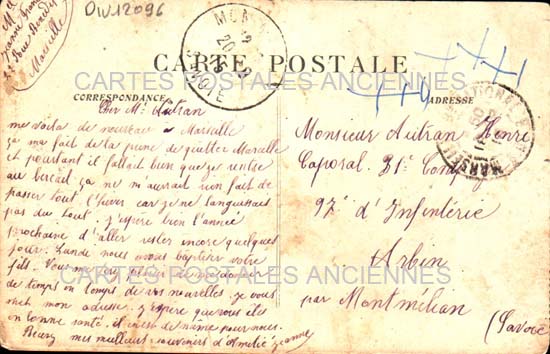 DIV12096
Jeanne
Rue
Marseille
CARTE POSTALE
CARTES POSTALES ANCIENNES
CORRESPONDANCE
ADRESSE
Cher Mr Autran
me voila de nouveau à Marseille
ça me fait de la peine de quitter Marcelle
et pourtant il fallait bien que je rentre
au bercail. ça ne m'aurait rien fait de
passer tout l'hiver car je ne languissais
pas du tout. j'espère bien l'année
prochaine d'aller rester encore quelques
jours. Lundi nous avons baptisé votre
fils. Vous me plaisir de me donner
de temps en temps de vos nouvelles. je vous
met mon adresse. j'espère que vous êtes
en bonne santé. il en est de même pour nous.
Recevez mes meilleurs souvenirs d'amitié Jeanne
Monsieur Autran Henri
Caporal 31e Comp
97e d'Infanterie
Arbin
CARTES POSTALES ANCIENNES
par Montmélian
(Savoie